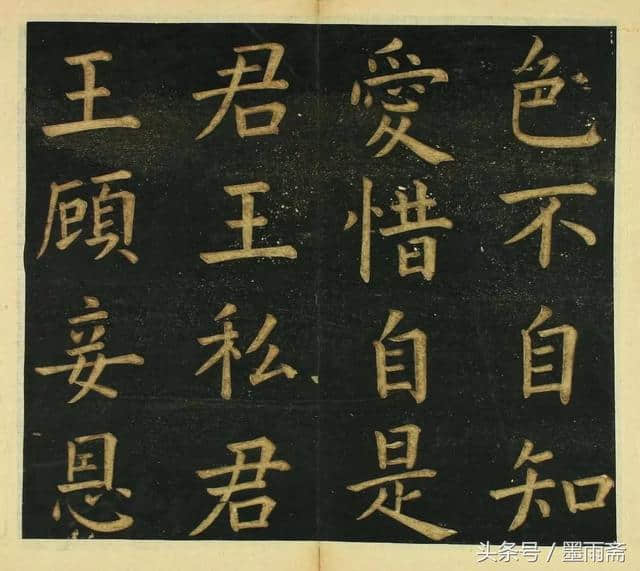 色不自知
愛惜自是
君王私君
王顧妾恩
头条号/墨雨斋